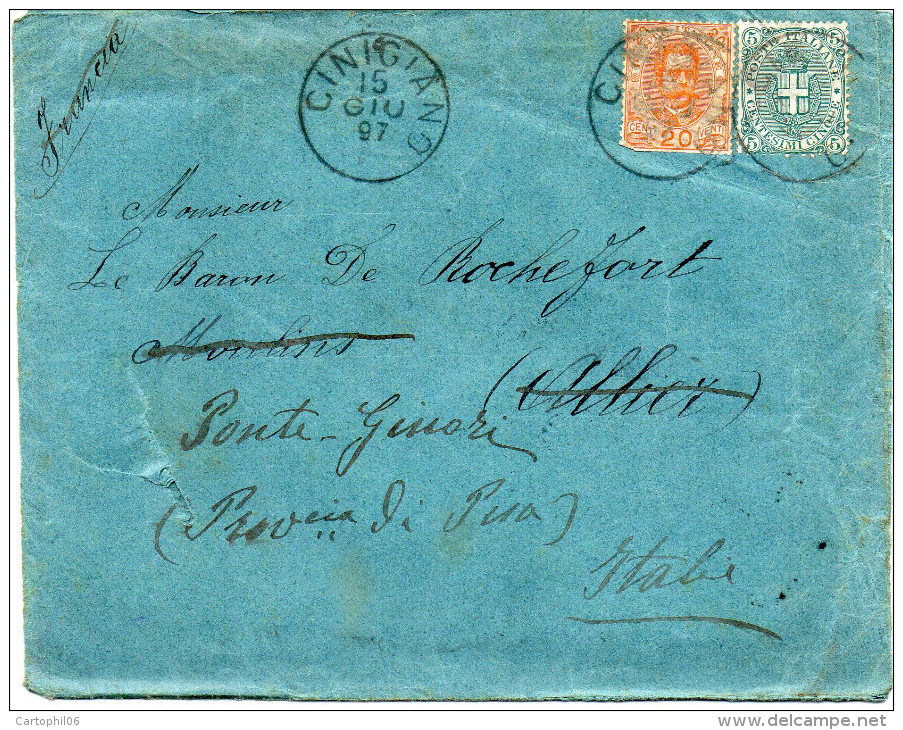 Francia
CINIGIANO
15
GIU
97
POSTE ITALIANE
CENT. 20 VENTI
5 5
CENTESIMI CINQUE
5 5
Monsieur
Le Baron De Rochefort
Moulins
(Allier)
Ponte-Ginori
(Prov cia di Pisa)
Italie
Cartophil06
delcampe.net